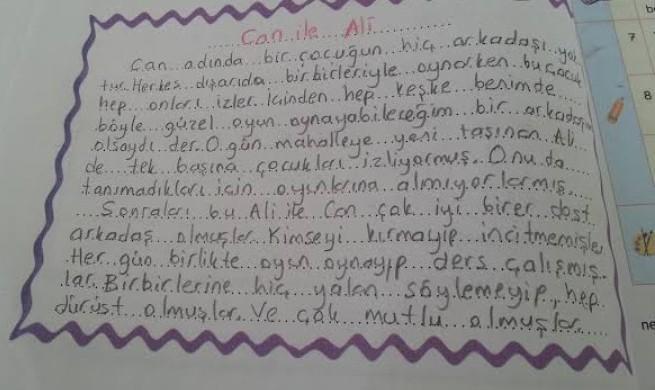 Can ile Ali
Can adında bir çocuğun hiç arkadaşı yok
tur. Herkes dışarıda birbirleriyle oynarken bu çocuk
hep onları izler. İçinden hep keşke benimde
böyle güzel oyun oynayabileceğim bir arkadaşım
olsaydı der. O gün mahalleye yeni taşınan Ali
de tek başına çocukları izliyormuş. Onu da
tanımadıkları için oyunlarına almıyorlarmış.
Sonraları bu Ali ile Can çok iyi birer dost
arkadaş olmuşlar. Kimseyi kırmayıp incitmemişle
Her gün birlikte oyun oynayıp ders çalışmış-
lar. Birbirlerine hiç yalan söylemeyip, hep
dürüst olmuşlar. Ve çok mutlu olmuşlar.
7
8
ne